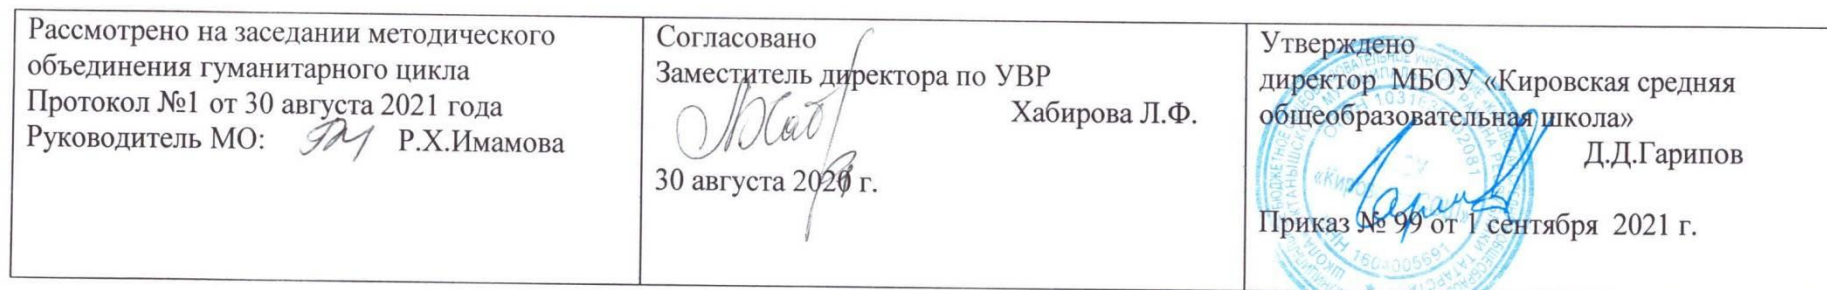 Рассмотрено на заседании методического
объединения гуманитарного цикла
Протокол №1 от 30 августа 2021 года
Руководитель МО: Р.Х.Имамова
Согласовано
Заместитель директора по УВР
Хабирова Л.Ф.
30 августа 2020 г.
Утверждено
директор МБОУ «Кировская средняя
общеобразовательная школа»
Д.Д.Гарипов
Приказ № 99 от 1 сентября 2021 г.